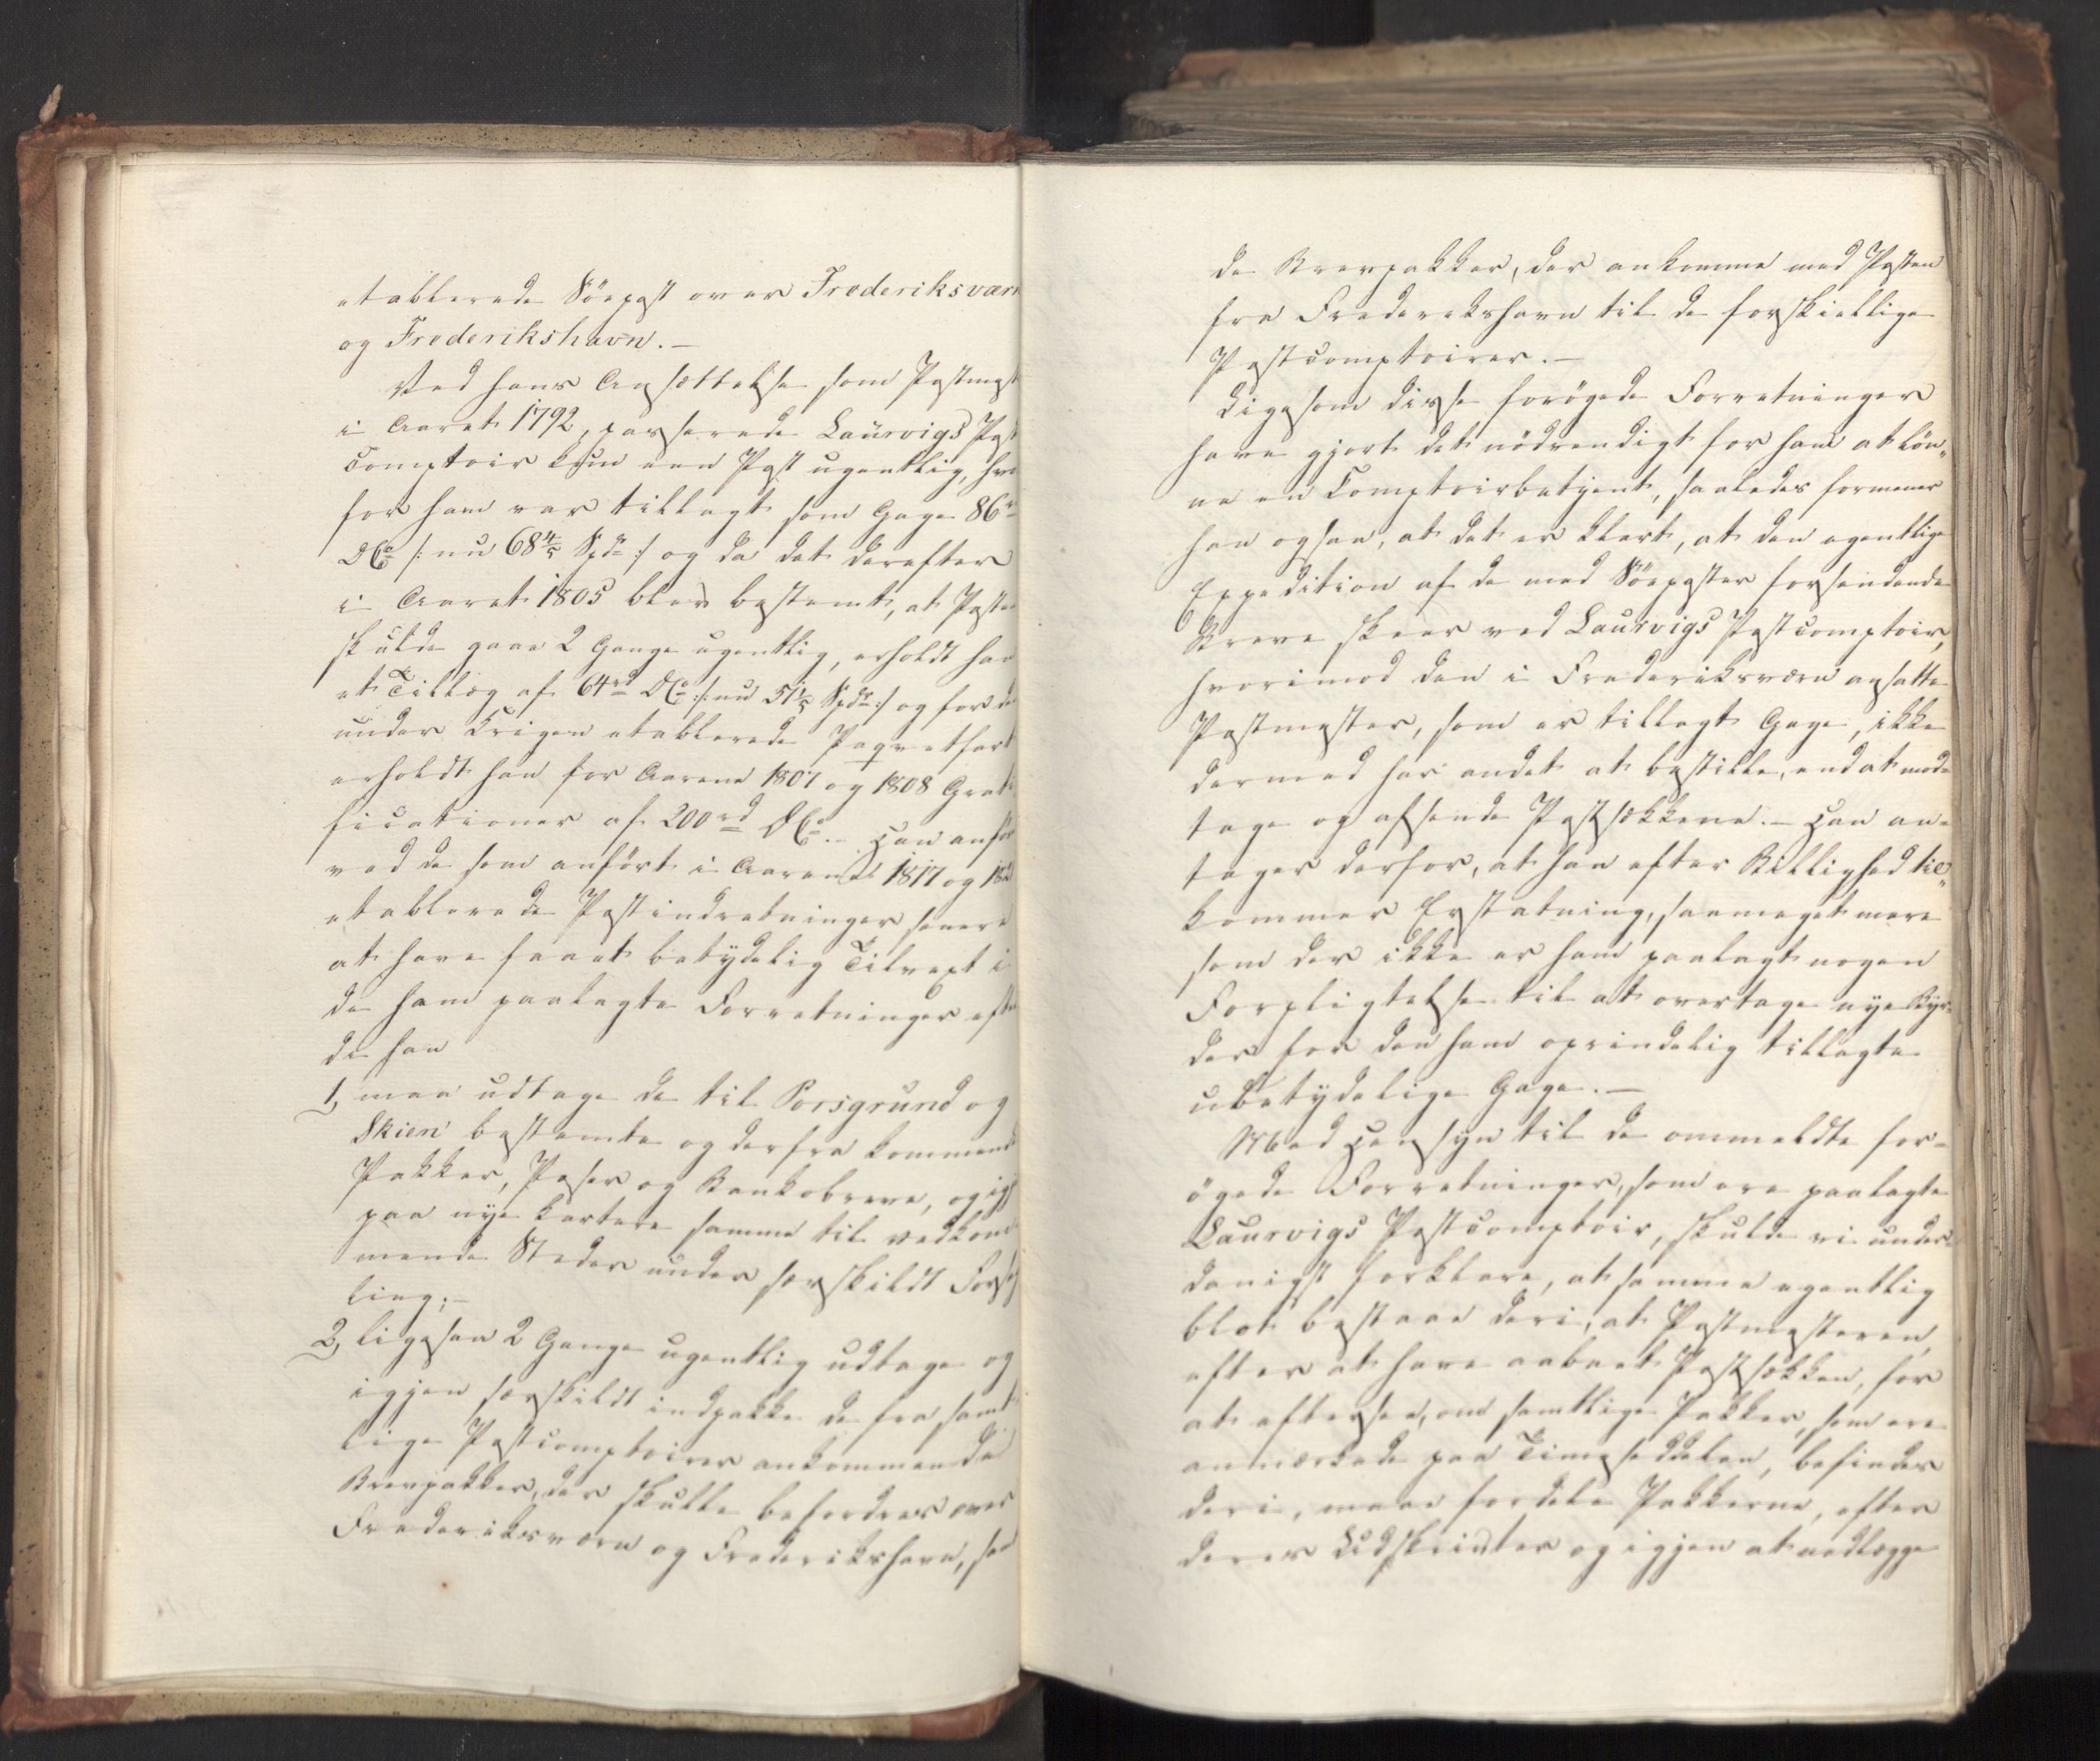 etablerede Söepost over Frederiksværn
og Frederikshavn.—
Ved hans Ansættelse som Postmest
i Aaret 1792, passerede Laurvigs Post
Comptoir kun een Post ugentlig, hvor
for ham var tillagt som Gage 86 rd
DC /: nu 68 4/5 Spdr :/ og da det derefter
i Aaret 1805 blev bestemt, at Posten
skulde gaae 2 Gange ugentlig, erholdt han
et Tillæg af 64 rd DC /: nu 51 1/5 Spdr :/ og for de
under Krigen etablerede Paqvetfart
erholdt han for Aarene 1807 og 1808 Grati
ficationer af 200 rd DC.— Han anför
ved de som anfört i Aarene 1817 og
etablerede Postindretninger senere
at have faaet betydelig Tilvext i
de ham paalagte Forretninger efter
di han
1, maa udtage de til Porsgrund og
Skien bestemte og derfra kommende
Pakker, Poser og Bankobreve, og igj
paa nye kartere samme til vedkom
mende Steder under særskildt Forseg
ling;—
2, ligesaa 2 Gange ugentlig udtage og
igjen særskildt indpakke de fra samt
lige Postcomptoirer ankommende
Brevpakker, der skulle befordres over
Frederiksværn og Frederikshavn, saa
de Brevpakker, der ankomme med Posten
fra Frederikshavn til de forskiellige
Postcomptoirer.—
Ligesom disse forögede Forretninger
have gjort det nödvendigt for ham at lön„
ne en Comptoirbetjent, saaledes formener
han ogsaa, at det er klart, at den egentlige
Expedition af de med Söeposter forsendende
Breve skeer ved Laurvigs Postcomptoir,
hvorimod den i Frederiksværn ansatte
Postmester, som er tillagt Gage, ikke
dermed har andet at bestille, end at mod-
tage og afsende Postsækkene.— Han an-
tager derfor, at han efter Billighed til„
kommer Erstatning, saameget mere
som der ikke er ham paalagt nogen
Forpligtelse til at overtage nye Byr-
der for den ham oprindelig tillagte
ubetydelige Gage.—
Med Hensyn til de ommeldte for-
ögede Forretninger, som ere paalagte
Laurvigs Postcomptoir, skulde vi under-
danigst forklare, at samme egentlig
blot bestaae deri, at Postmesteren,
efter at have aabnet Postsækken, for
at eftersee, om samtlige Pakker, som ere
anmærkede paa Timeseddelen, befindes
deri, maae fordele Pakkerne, efter
deres Udskrivter og igjen at nedlægge